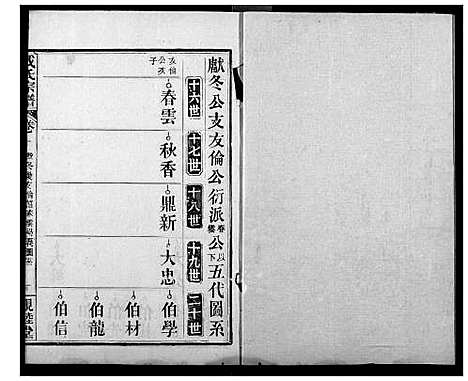 獻冬公支友倫公衍派春雲公以下五代圖系
十六世 十七世 十八世 十九世 二十世
友倫公次子
春雲 秋香 鼎新 大忠 伯學
伯材
伯龍
伯信
氏宗譜
卷
親睦堂